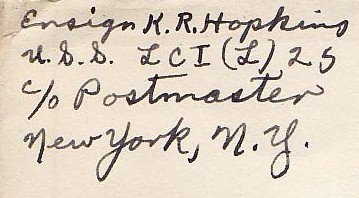 Ensign K.R. Hopkins
U.S.S. LCI (L) 25
c/o Postmaster
New York, N.Y.